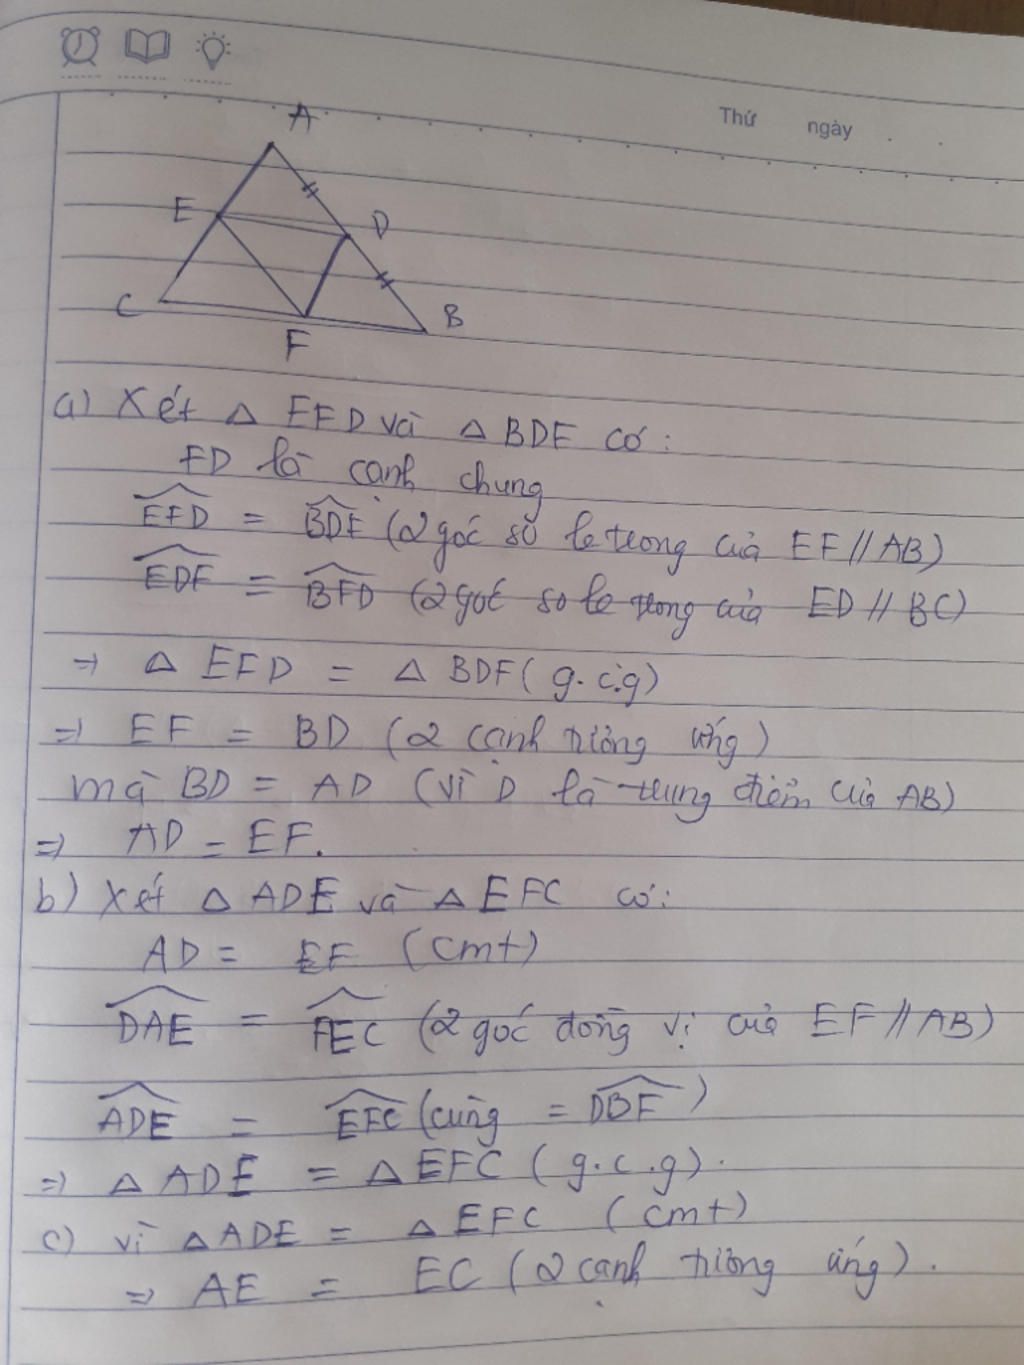 Thứ ngày
A
E D
C B
F
a) Xét △ EFD và △ BDF có:
FD là cạnh chung
EFD = BDF (2 góc so le trong của EF // AB)
EDF = BFD (2 góc so le trong của ED // BC)
=> △ EFD = △ BDF ( g.c.g)
=> EF = BD (2 cạnh tương ứng)
mà BD = AD (vì D là trung điểm của AB)
=> AD = EF.
b) Xét △ ADE và △ EFC có:
AD = EF (cmt)
DAE = FEC (2 góc đồng vị của EF // AB)
ADE = EFC (cùng = DBF)
=> △ ADE = △ EFC ( g.c.g).
c) vì △ ADE = △ EFC (cmt)
=> AE = EC (2 cạnh tương ứng).